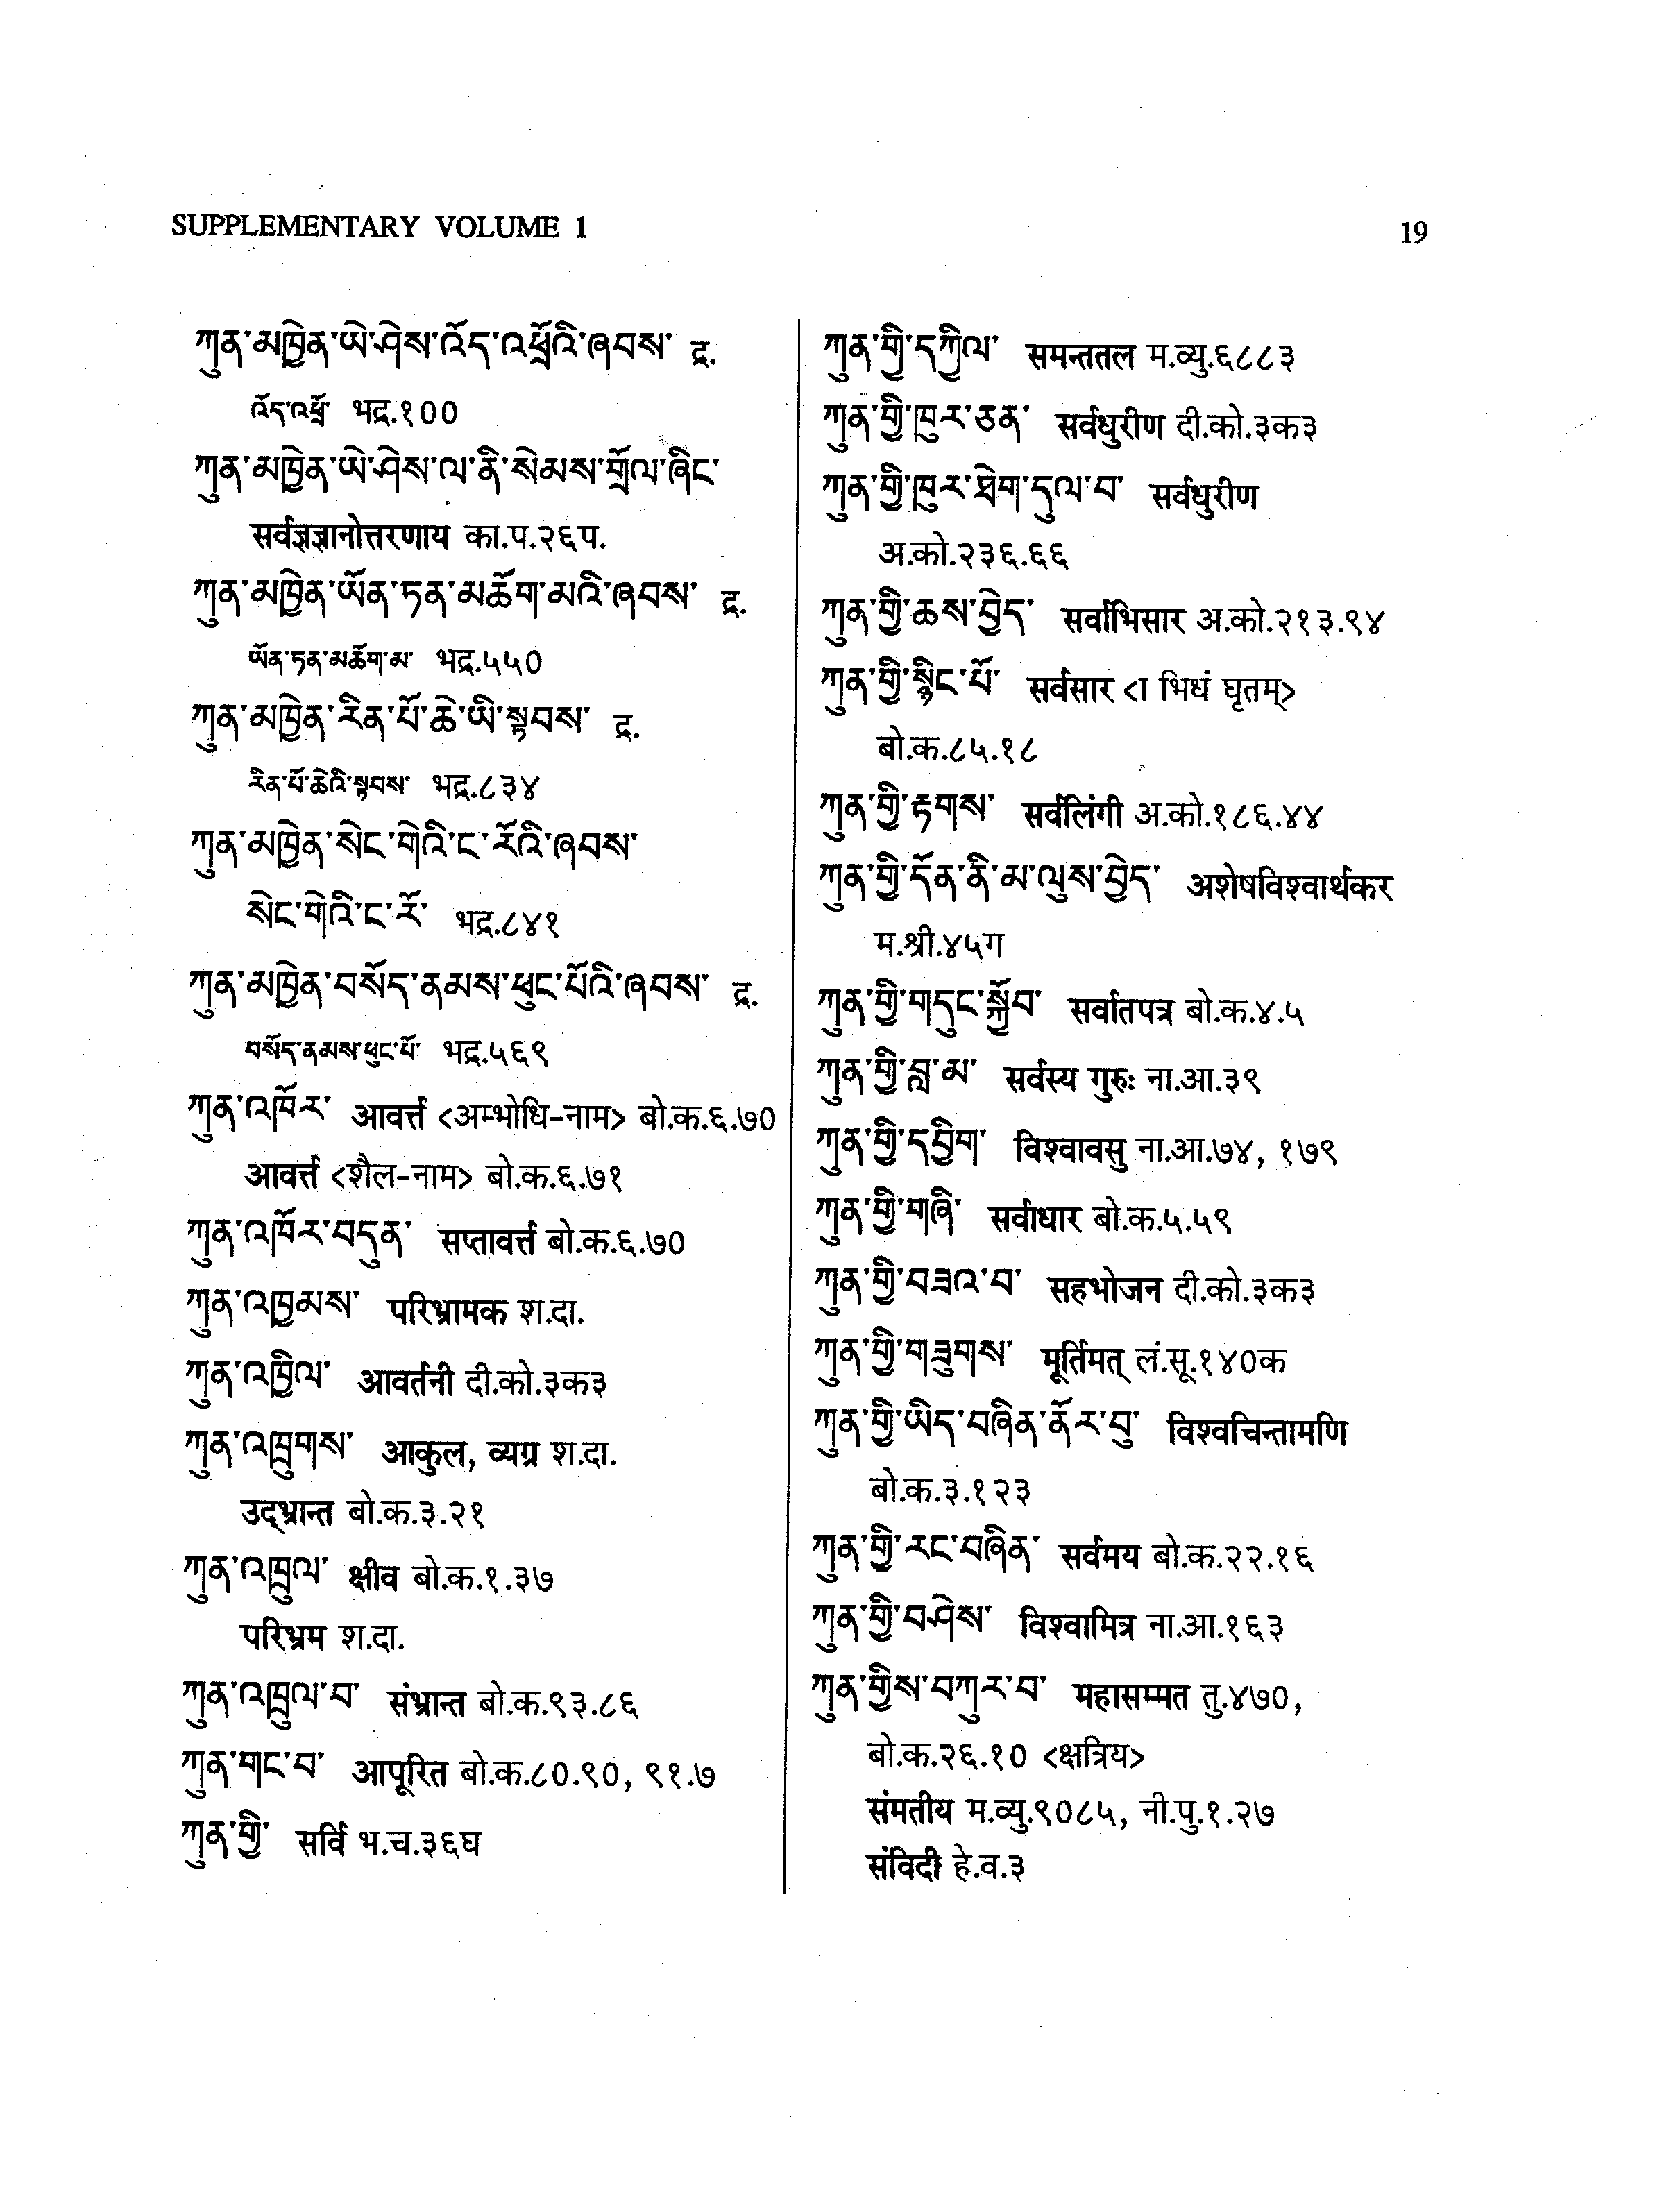 SUPPLEMENTARY VOLUME 1
19
ཀུན་མཁྱེན་ཡེ་ཤེས་འོད་འཕྲོའི་ཞབས་ द्र.
འོད་འཕྲོ་ भद्र.१००
ཀུན་མཁྱེན་ཡེ་ཤེས་ལ་ནི་སེམས་གྲོལ་ཞིང་
सर्वज्ञज्ञानोत्तरणाय का.प.२६प.
ཀུན་མཁྱེན་ཡོན་ཏན་མཆོག་མའི་ཞབས་ द्र.
ཡོན་ཏན་མཆོག་མ་ भद्र.५५०
ཀུན་མཁྱེན་རིན་པོ་ཆེ་ཡི་སྟབས་ द्र.
རིན་པོ་ཆེའི་སྟབས་ भद्र.८३४
ཀུན་མཁྱེན་སེང་གེའི་ང་རོའི་ཞབས་
སེང་གེའི་ང་རོ་ भद्र.८४१
ཀུན་མཁྱེན་བསོད་ནམས་ཕུང་པོའི་ཞབས་ द्र.
བསོད་ནམས་ཕུང་པོ་ भद्र.५६९
ཀུན་འཁོར་ आवर्त्त <अम्भोधि-नाम> बो.क.६.७०
आवर्त्त <शैल-नाम> बो.क.६.७१
ཀུན་འཁོར་བདུན་ सप्तावर्त्त बो.क.६.७०
ཀུན་འཁྱམས་ परिभ्रामक श.दा.
ཀུན་འཁྱིལ་ आवर्तनी दी.को.३क३
ཀུན་འཁྲུགས་ आकुल, व्यग्र श.दा.
उद्भ्रान्त बो.क.३.२१
ཀུན་འཁྲུལ་ क्षीव बो.क.१.३७
परिभ्रम श.दा.
ཀུན་འཁྲུལ་བ་ संभ्रान्त बो.क.९३.८६
ཀུན་གང་བ་ आपूरित बो.क.८०.९०, ९१.७
ཀུན་གྱི་ सर्वि भ.च.३६घ
ཀུན་གྱི་དཀྱིལ་ समन्ततल म.व्यु.६८८३
ཀུན་གྱི་ཁུར་ཅན་ सर्वधुरीण दी.को.३क३
ཀུན་གྱི་ཁུར་ཐེག་དུལ་བ་ सर्वधुरीण
अ.को.२३६.६६
ཀུན་གྱི་ཆས་བྱེད་ सर्वाभिसार अ.को.२१३.९४
ཀུན་གྱི་སྙིང་པོ་ सर्वसार <ा भिधं घृतम्>
बो.क.८५.१८
ཀུན་གྱི་རྟགས་ सर्वलिंगी अ.को.१८६.४४
ཀུན་གྱི་དོན་ནི་མ་ལུས་བྱེད་ अशेषविश्वार्थकर
म.श्री.४५ग
ཀུན་གྱི་གདུང་སྐྱོབ་ सर्वातपत्र बो.क.४.५
ཀུན་གྱི་བླ་མ་ सर्वस्य गुरुः ना.आ.३९
ཀུན་གྱི་དབྱིག་ विश्वावसु ना.आ.७४, १७९
ཀུན་གྱི་གཞི་ सर्वाधार बो.क.५.५९
ཀུན་གྱི་བཟའ་བ་ सहभोजन दी.को.३क३
ཀུན་གྱི་གཟུགས་ मूर्तिमत् लं.सू.१४०क
ཀུན་གྱི་ཡིད་བཞིན་ནོར་བུ་ विश्वचिन्तामणि
बो.क.३.१२३
ཀུན་གྱི་རང་བཞིན་ सर्वमय बो.क.२२.१६
ཀུན་གྱི་བཤེས་ विश्वामित्र ना.आ.१६३
ཀུན་གྱིས་བཀུར་བ་ महासम्मत तु.४७०,
बो.क.२६.१० <क्षत्रिय>
संमतीय म.व्यु.९०८५, नी.पु.१.२७
संविदी हे.व.३